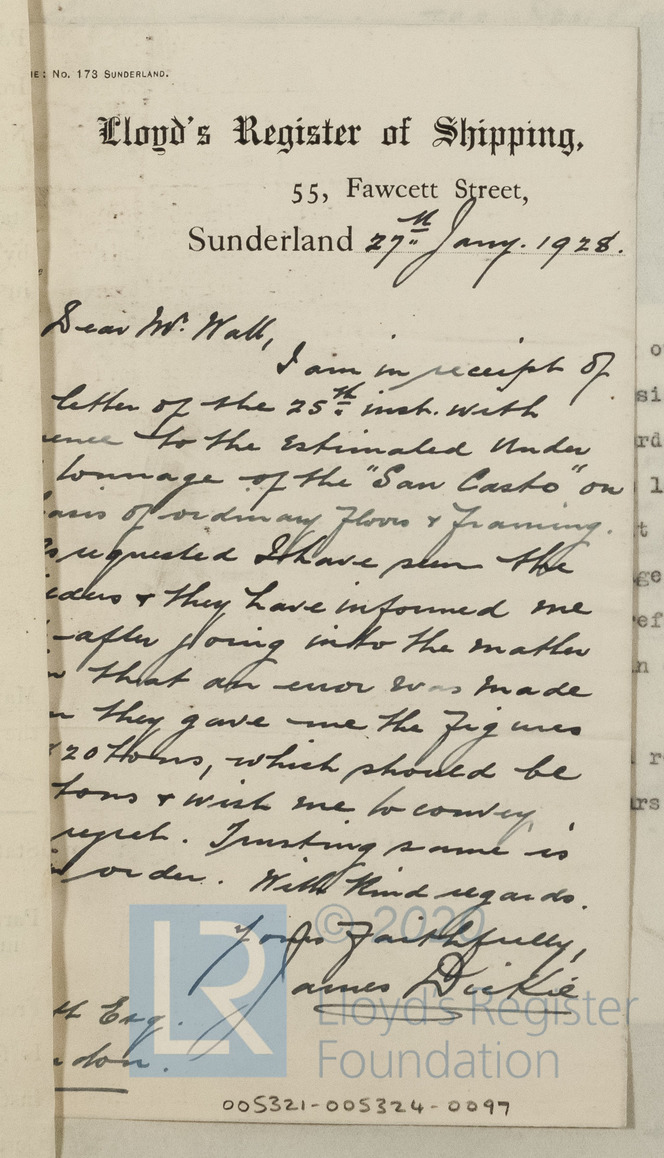 NE: No. 173 SUNDERLAND.
Lloyd's Register of Shipping,
55, Fawcett Street,
Sunderland 27th Jany. 1928.
Dear Mr. Wall,
I am in receipt of
letter of the 25th inst. with
ence to the Estimated Under
tonnage of the "San Casto" on
asis of ordinary Floors & Framing.
As requested I have seen the
lders & they have informed me
after going into the matter
that an error was made
they gave me the figures
20 tons, which should be
tons & wish me to convey
regret. Trusting same is
order. With Kind regards.
Yours Faithfully,
James Dickie
Esq.
don.
LR
© 2020
Lloyd's Register
Foundation
005321-005324-0097
o
si
rd
l
t
ge
ef
n
r
rs